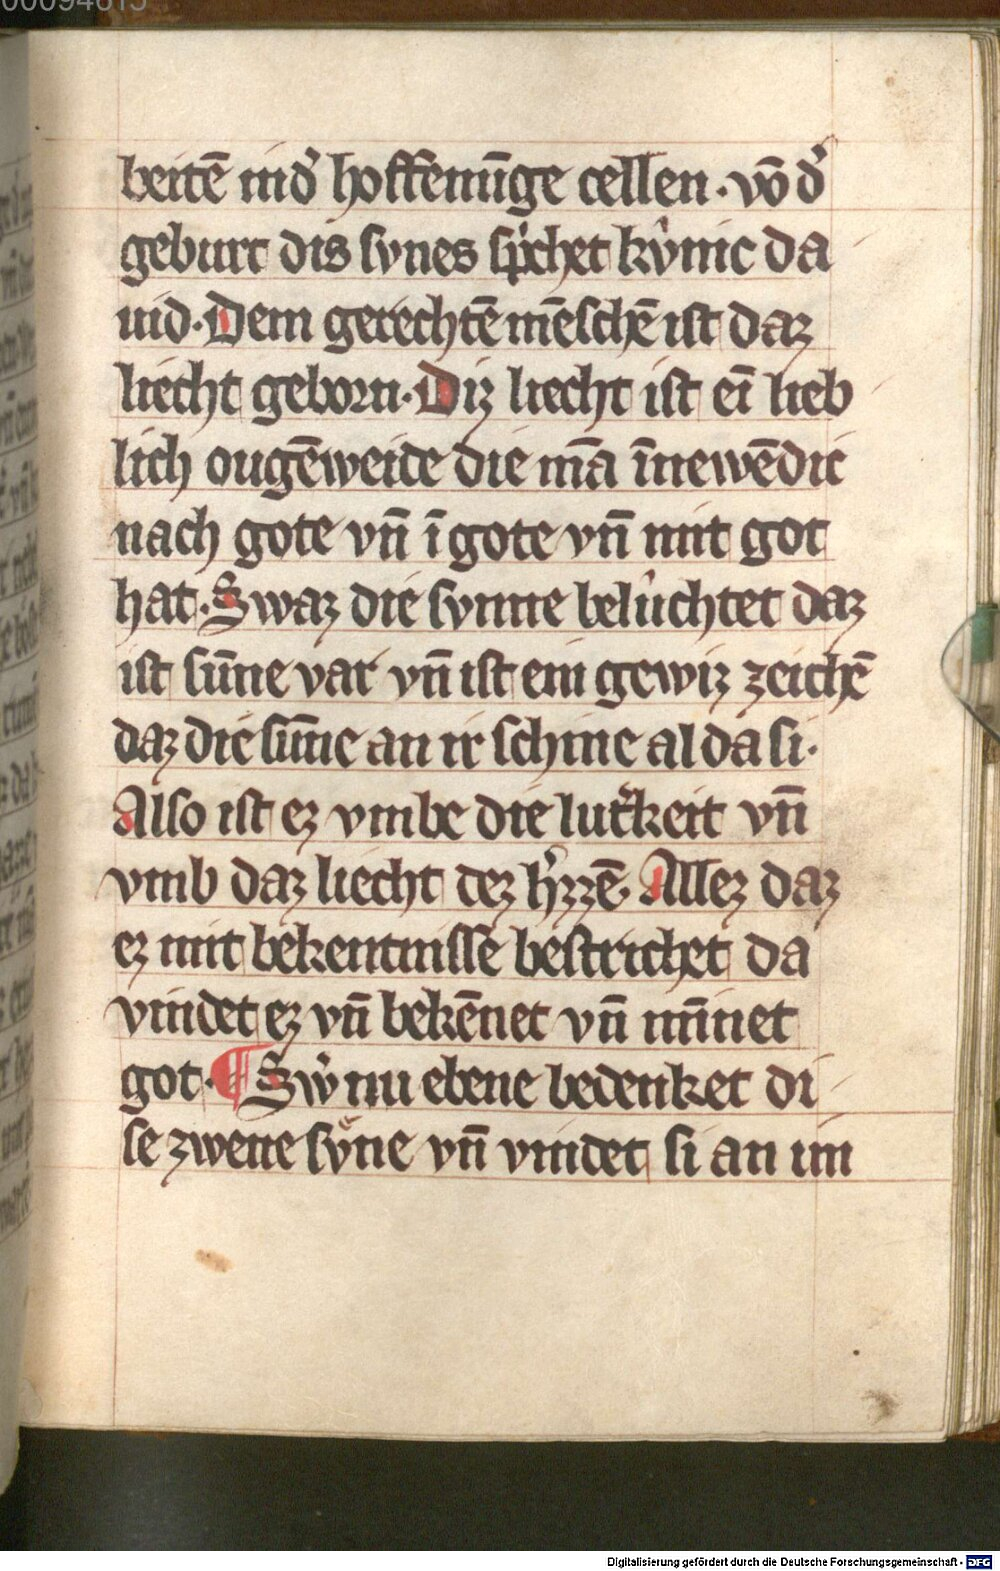 00094815
beitē in d᷑ hoffenūge cellen · vō d᷑
geburt dis synes sp̾chet kv́nic da
uid · Dem gerechtē mēschē ist daz
liecht geborn · Diz liecht ist eī lieb
lich ougēweide die mā īnewēdic
nach gote vn̄ ī gote vn̄ mit got
hat · Swaz die sunne belúchtet daz
ist sūne var vn̄ ist ein gewiz zeichē
daz die sūne an ir schine al da si ·
Also ist ez vmbe die lut᷑keit vn̄
vmb daz liecht dez h᷑zzē · Allez daz
ez mit bekentnisse bestrichet da
vindet ez vn̄ bekēnet vn̄ mīnet
got · ¶ Sw᷑ nu ebene bedenket di
se zwene sy̆ne vn̄ vindet si an im
Digitalisierung gefördert durch die Deutsche Forschungsgemeinschaft - DFG